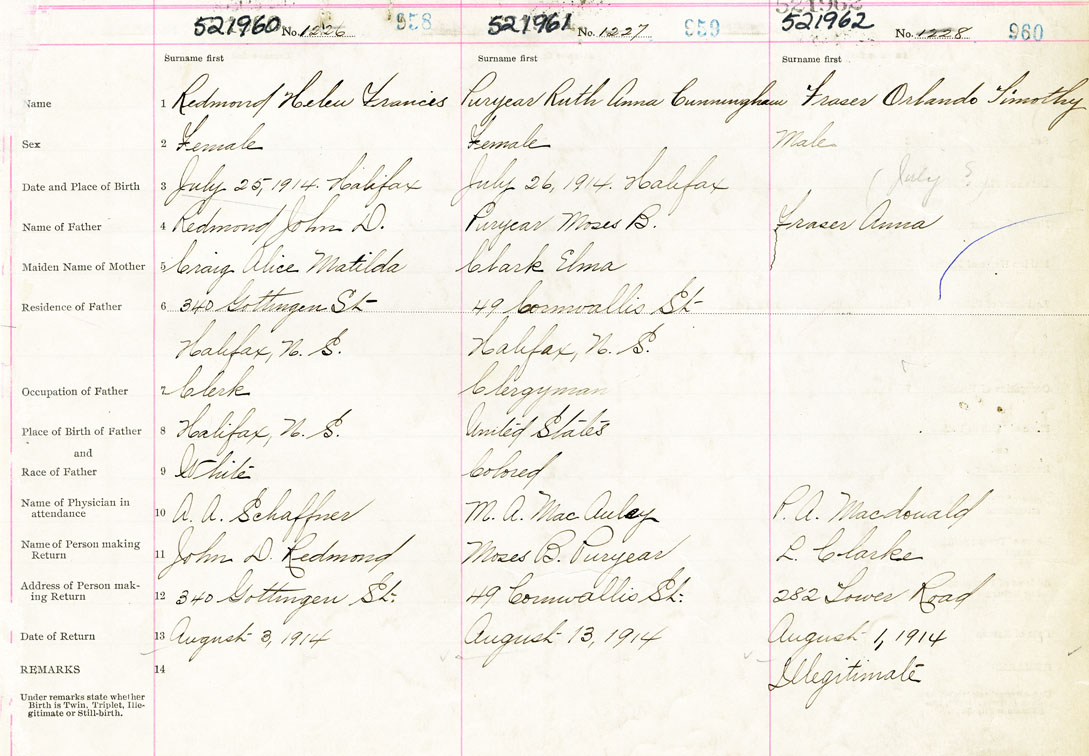 521962
521960 No. 1226 958 521961 No. 1227 959 521962 No. 1228 960
Surname first Surname first Surname first
Name 1 Redmond Helen Frances Puryear Ruth Anna Cunningham Fraser Orlando Timothy
Sex 2 Female Female Male
Date and Place of Birth 3 July 25, 1914. Halifax July 26, 1914. Halifax (July
Name of Father 4 Redmond John D. Puryear Moses B. Fraser Anna
Maiden Name of Mother 5 Craig Alice Matilda Clark Elma
Residence of Father 6 340 Gottingen St 49 Cornwallis St
Halifax, N. S. Halifax, N. S.
Occupation of Father 7 Clerk Clergyman
Place of Birth of Father 8 Halifax, N. S. United States
and
Race of Father 9 White Colored
Name of Physician in
attendance 10 A. A. Schaffner M. A. MacAuley P. A. Macdonald
Name of Person making
Return 11 John D. Redmond Moses B. Puryear L. Clarke
Address of Person mak-
ing Return 12 340 Gottingen St. 49 Cornwallis St. 282 Tower Road
Date of Return 13 August 3, 1914 August 13, 1914 August 1, 1914
REMARKS 14 Illegitimate
Under remarks state whether
Birth is Twin, Triplet, Ille-
gitimate or Still-birth.